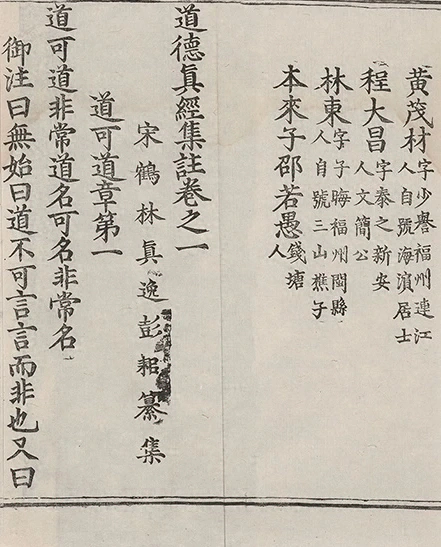 黄茂材字少譽福州連江人自號海濵居士
程大昌字泰之新安人文簡公
林東字子晦福州閩縣人自號三山樵子
本來子邵若愚錢塘人
道德眞經集註卷之一
宋鶴林眞逸彭耜纂集
道可道章第一
道可道非常道名可名非常名
御注曰無始曰道不可言言而非也又曰